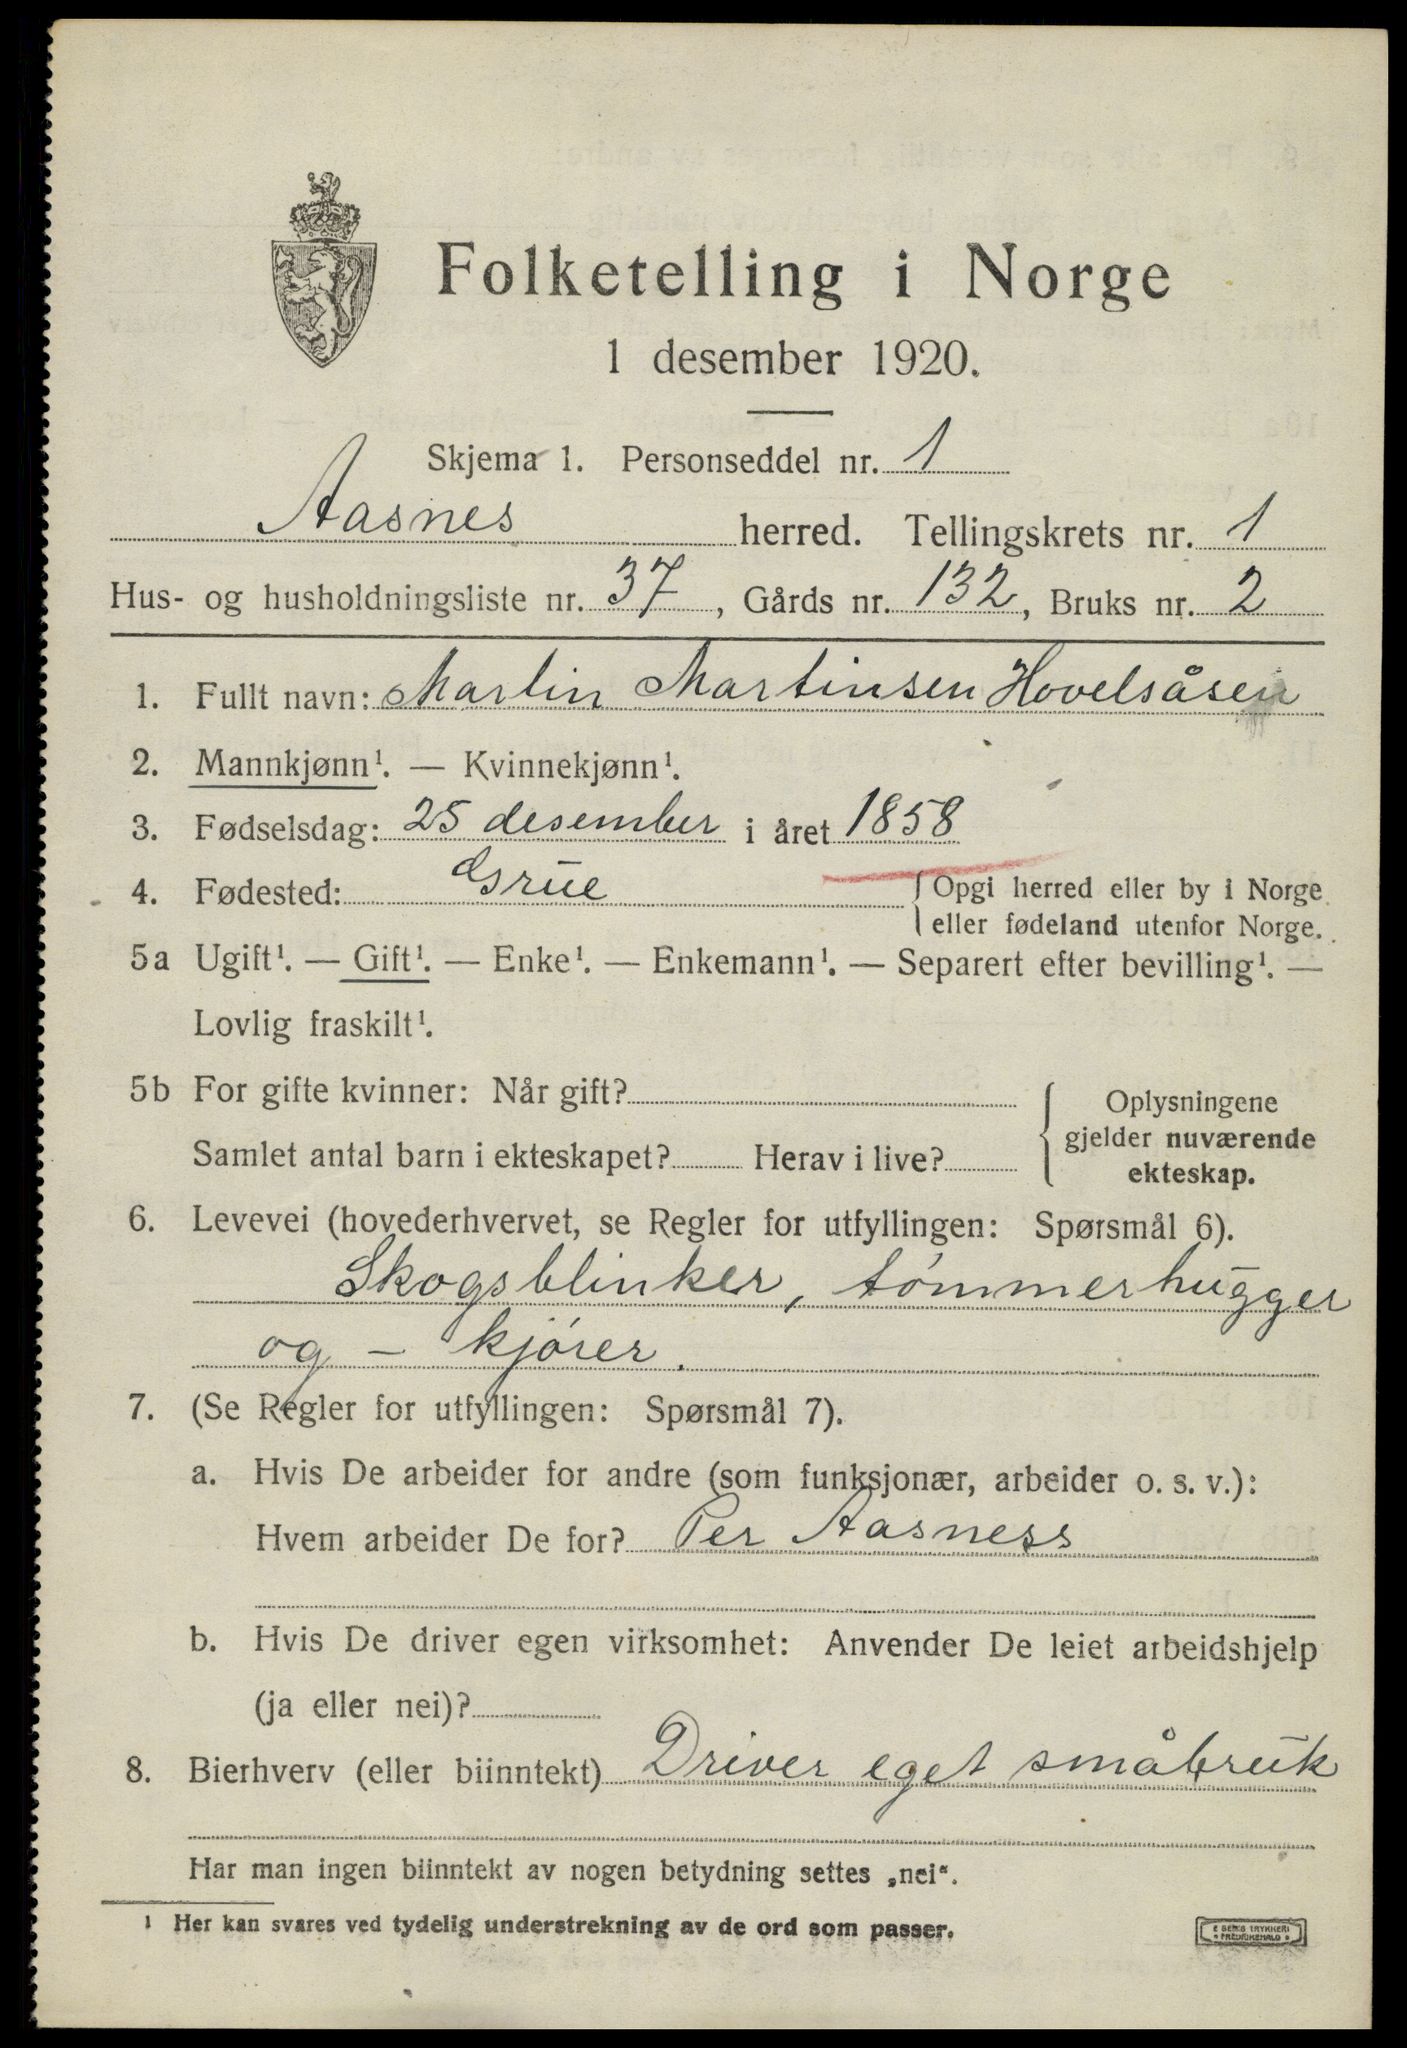 Folketelling i Norge
1 desember 1920.
Skjema 1. Personseddel nr. 1
Aasnes herred. Tellingskrets nr. 1
Hus- og husholdningsliste nr. 37, Gårds nr. 132, Bruks nr. 2
1. Fullt navn: Martin Martinsen Hovelsåsen
2. Mannkjønn¹. — Kvinnekjønn¹.
3. Fødselsdag: 25 desember i året 1858
4. Fødested: Grue { Opgi herred eller by i Norge
eller fødeland utenfor Norge.
5a Ugift¹. — Gift¹. — Enke¹. — Enkemann¹. — Separert efter bevilling¹. —
Lovlig fraskilt¹.
5b For gifte kvinner: Når gift?
Samlet antal barn i ekteskapet? Herav i live?
Oplysningene
gjelder nuværende
ekteskap.
6. Levevei (hovederhvervet, se Regler for utfyllingen: Spørsmål 6).
Skogsblinker, tømmerhugger
og - kjører.
7. (Se Regler for utfyllingen: Spørsmål 7).
a. Hvis De arbeider for andre (som funksjonær, arbeider o. s. v.):
Hvem arbeider De for? Per Aasness
b. Hvis De driver egen virksomhet: Anvender De leiet arbeidshjelp
(ja eller nei)?
8. Bierhverv (eller biinntekt) Driver eget småbruk
Har man ingen biinntekt av nogen betydning settes „nei“.
1 Her kan svares ved tydelig understrekning av de ord som passer.
E SEM'S TRYKKERI
FREDRIKSHALD